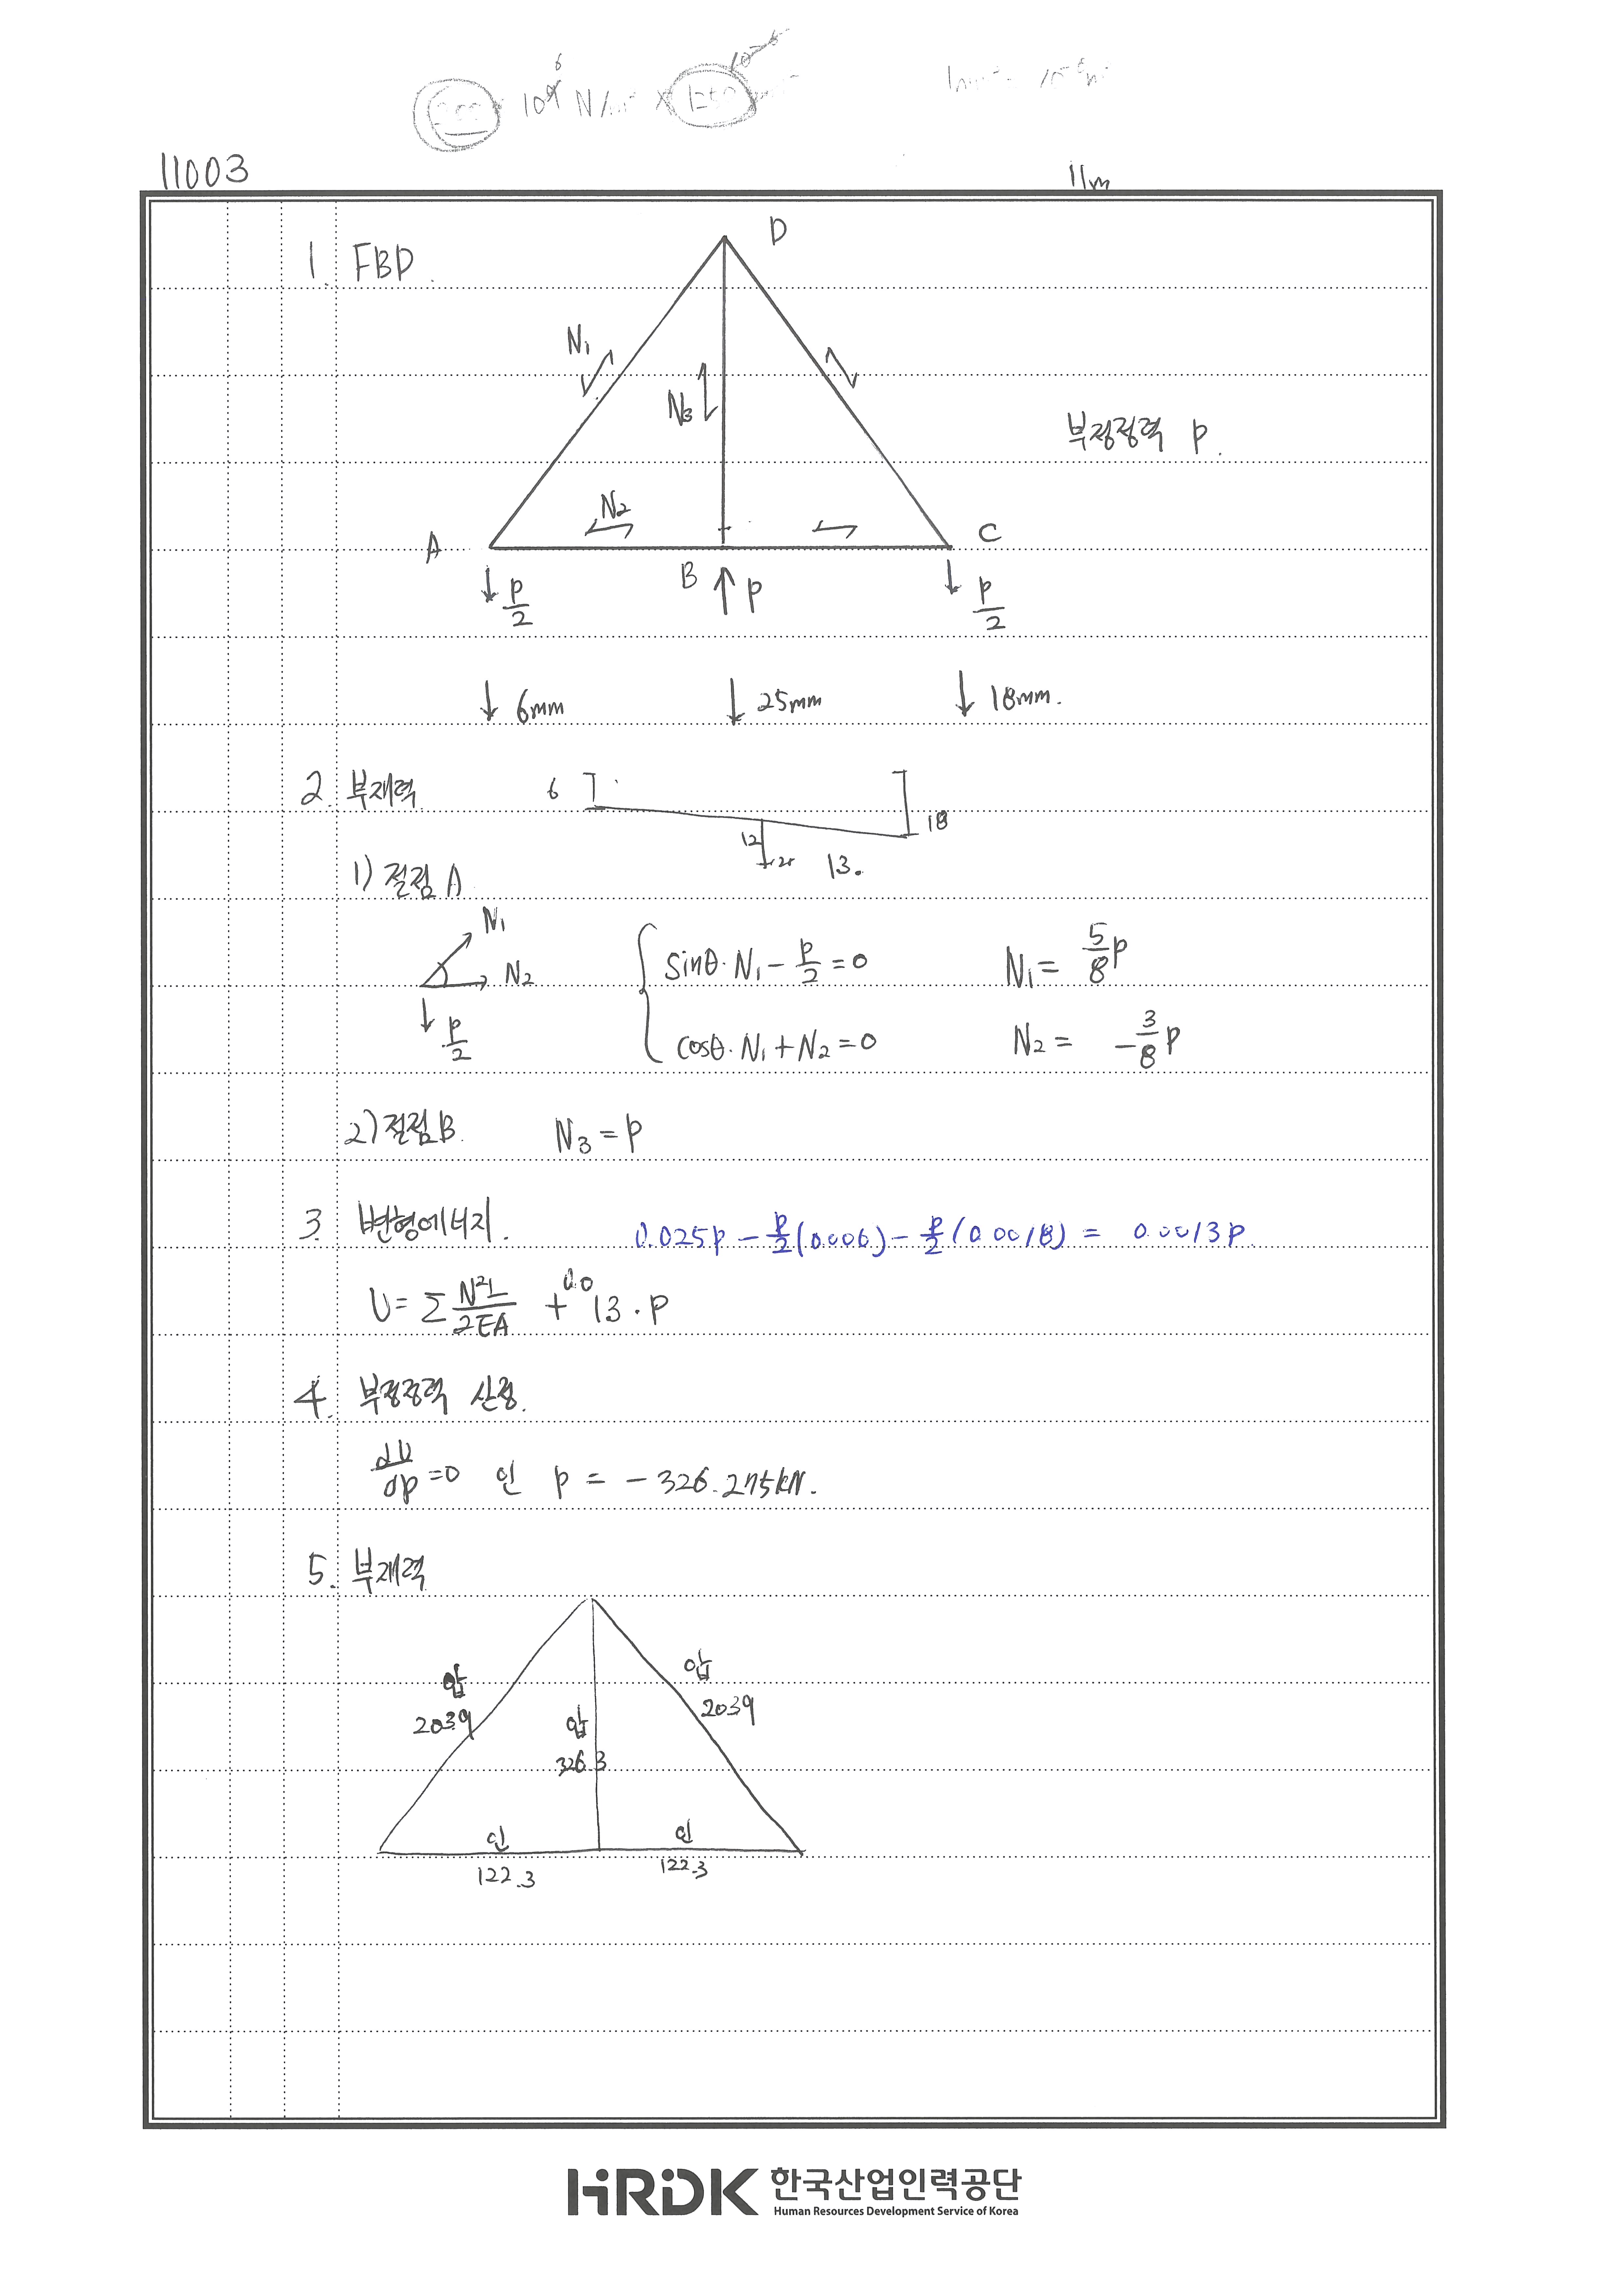 10⁶ N/m² ×
10⁻⁶
11003
11m
1. FBD.
D
N₁
N₃
부정정력 P.
N₂
A
B
C
P/2
P
P/2
6mm
25mm
18mm.
2. 부재력
6
18
12
25
13.
1) 절점 A
N₁
N₂
P/2
sinθ·N₁ - P/2 = 0
N₁ = 5/8 P
cosθ·N₁ + N₂ = 0
N₂ = -3/8 P
2) 절점 B.
N₃ = P
3. 변형에너지.
0.025P - P/2(0.006) - P/2(0.0018) = 0.0013P
U = Σ N²L/2EA + 0.013·P
4. 부정정력 산정.
dU/dP = 0 인 P = -326.275kN.
5. 부재력
압
2039
압
2039
압
326.3
인
122.3
인
122.3
HRDK 한국산업인력공단
Human Resources Development Service of Korea